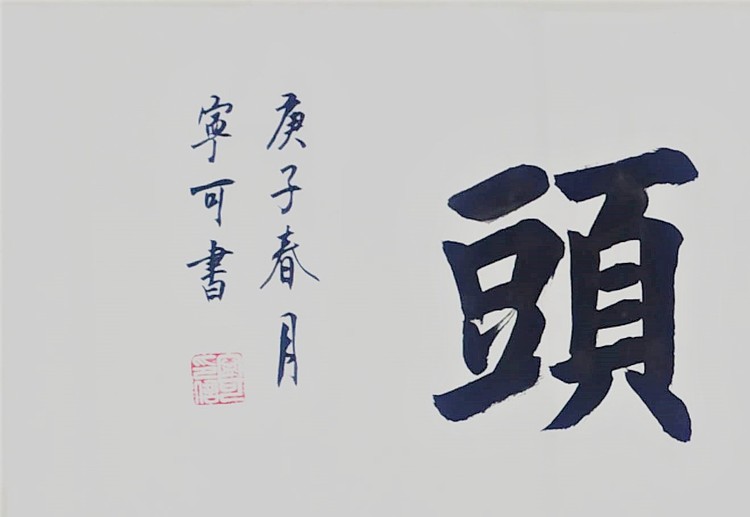 頭
庚子春月
寧可書